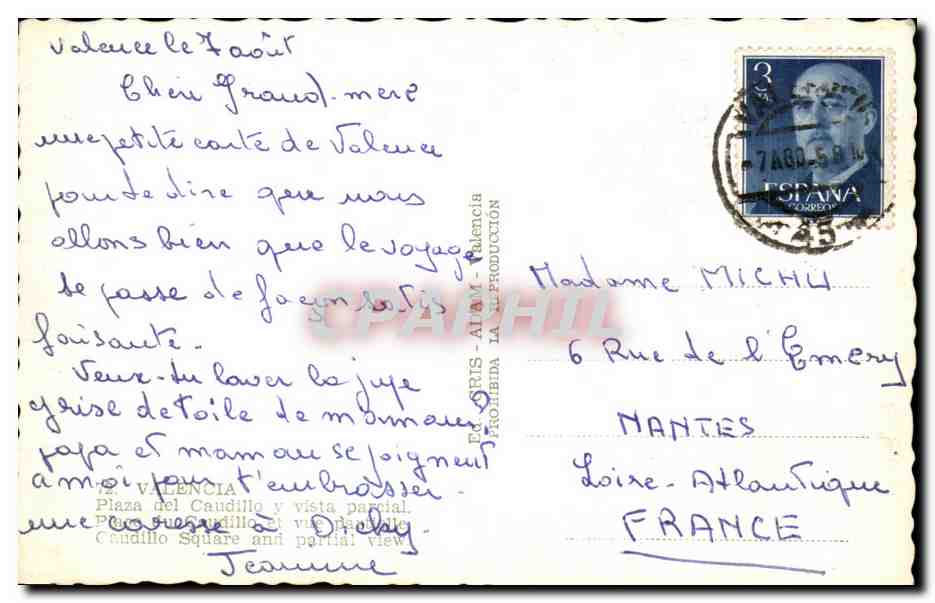 Valence le 7 août
Chère Grand-mère
une petite carte de Valence
pour te dire que nous
allons bien que le voyage
se passe de façon satis
faisante.
Veux-tu laver la jupe
grise de toile de maman?
papa et maman se joignent
à moi pour t'embrasser.
une caresse à Dicky.
Jeanne
72. VALENCIA
Plaza del Caudillo y vista parcial.
Place du Caudillo et vue partielle
Caudillo Square and partial view
Ed. - ADAM - Valencia
PROHIBIDA LA REPRODUCCIÓN
CPAPHIL
3
7 AGO. 58
ESPAÑA
CORREOS
45
Madame MICHU
6 Rue de l'Emery
NANTES
Loire-Atlantique
FRANCE